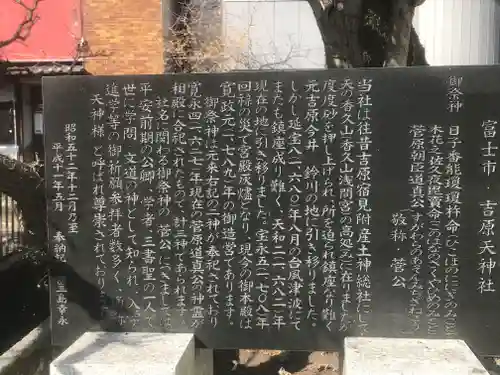 富士市・吉原天神社
御祭神
日子番能瓊瓊杵命(ひこほのににぎのみこと)
木花之佐久夜毘賣命(このはなのさくやひめのみこと)
菅原朝臣道真公(すがわらのあそみみちざねこう)
敬称 菅公
当社は往昔吉原宿見附産土神総社にして
天乃香久山(香久山浅間宮)の高処に在りましたが
度度砂を押し上げられ、所を追われ鎮座なり難く
元吉原今井、鈴川の地に引き移りました。
しかし延宝八(一六八〇)年八月の台風津波にて
またも鎮座成り難く、天和二(一六八二)年
現在の地に引き移りました。宝永五(一七〇八)年
回禄の災にて宮殿灰燼となり、現今の御本殿は
寛政元(一七八九)年の御造営であります。
御祭神は元来右記の二神が奉祀されており
寛永四(一六二七)年現在の菅原道真公の神霊が
相殿に合祀されたもので、計三神であられます。
社名に関わる御祭神の「菅公」にきましては
平安前期の公卿、学者、三書聖の一人で
世に学問、文道の神として知られ、入
進学等の御祈願参拝者数多く、
天神様」と呼ばれ尊崇されており
昭和五十二年十二月乃至
平成十一年五月
奉納記
三島幸永